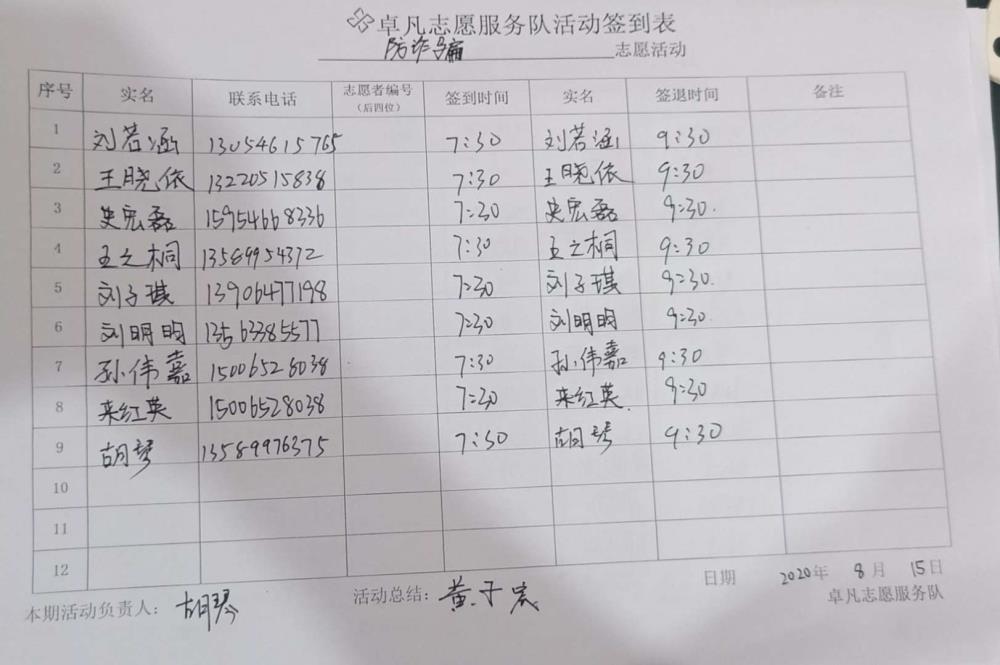 卓凡志愿服务队活动签到表
防诈骗 志愿活动
序号 实名 联系电话 志愿者编号（后四位） 签到时间 实名 签退时间 备注
1 刘若涵 13054615765 7:30 刘若涵 9:30
2 王晓依 13220515838 7:30 王晓依 9:30
3 史宏磊 15954668336 7:30 史宏磊 9:30.
4 王之桐 13589954372 7:30 王之桐 9:30
5 刘子琪 13906477198 7:30 刘子琪 9:30.
6 刘明昀 13563385577 7:30 刘明昀 9:30.
7 孙伟嘉 15006528038 7:30 孙伟嘉 9:30
8 来红英 15006528038 7:30 来红英. 9:30
9 胡琴 13589976375 7:30 胡琴 9:30
10
11
12
日期 2020年 8月 15日
本期活动负责人： 胡琴 活动总结： 黄子宸
卓凡志愿服务队